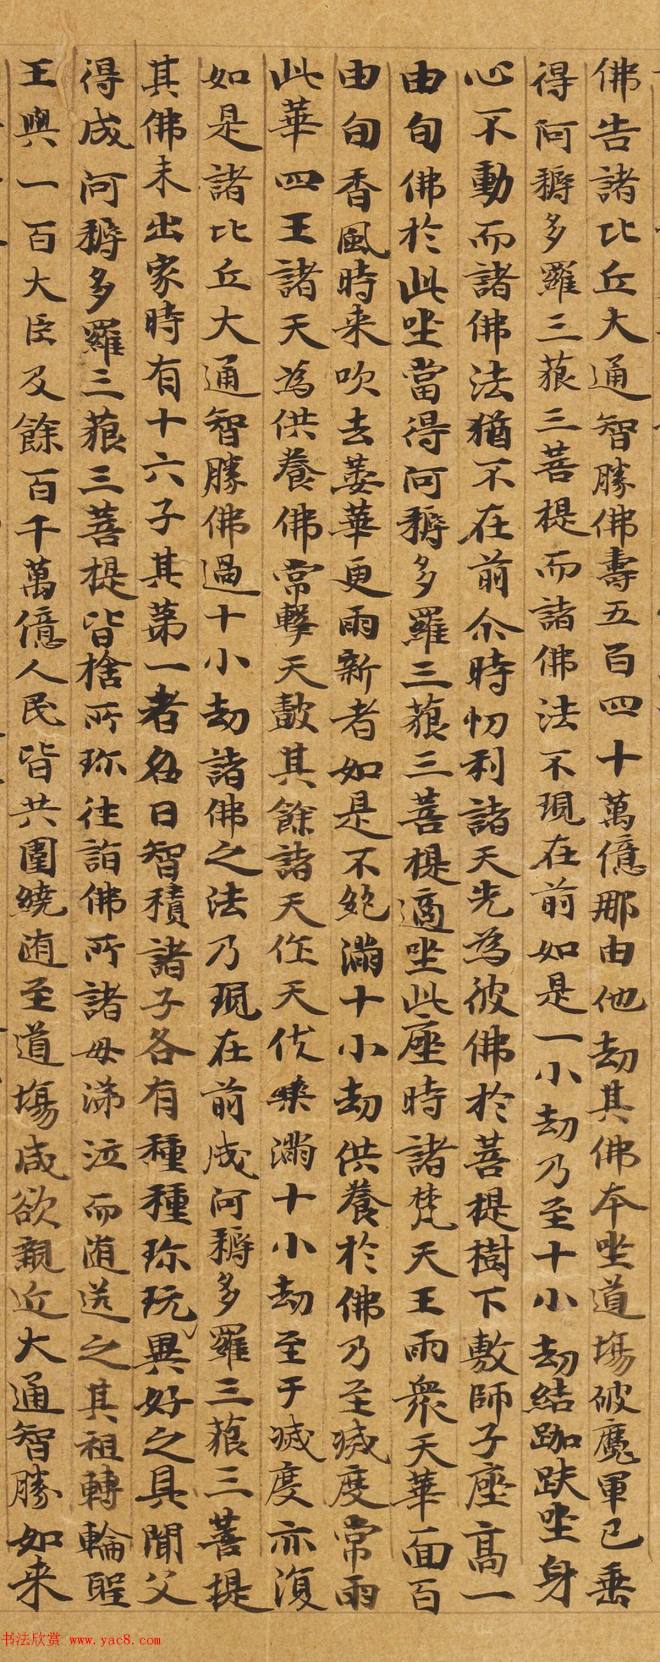 佛告諸比丘大通智勝佛壽五百四十萬億那由他劫其佛本坐道場破魔軍已垂
得阿耨多羅三藐三菩提而諸佛法不現在前如是一小劫乃至十小劫結跏趺坐身
心不動而諸佛法猶不在前尒時忉利諸天先為彼佛於菩提樹下敷師子座高一
由旬佛於此坐當得阿耨多羅三藐三菩提適坐此座時諸梵天王雨衆天華面百
由旬香風時来吹去萎華更雨新者如是不絶滿十小劫供養於佛乃至滅度常雨
此華四王諸天為供養佛常擊天鼓其餘諸天作天伎樂滿十小劫至于滅度亦復
如是諸比丘大通智勝佛過十小劫諸佛之法乃現在前成阿耨多羅三藐三菩提
其佛未出家時有十六子其第一者名曰智積諸子各有種種珎玩異好之具聞父
得成阿耨多羅三藐三菩提皆捨所珎往詣佛所諸母涕泣而随送之其祖轉輪聖
王與一百大臣及餘百千萬億人民皆共圍繞随至道場咸欲親近大通智勝如来
书法欣赏 www.yac8.com